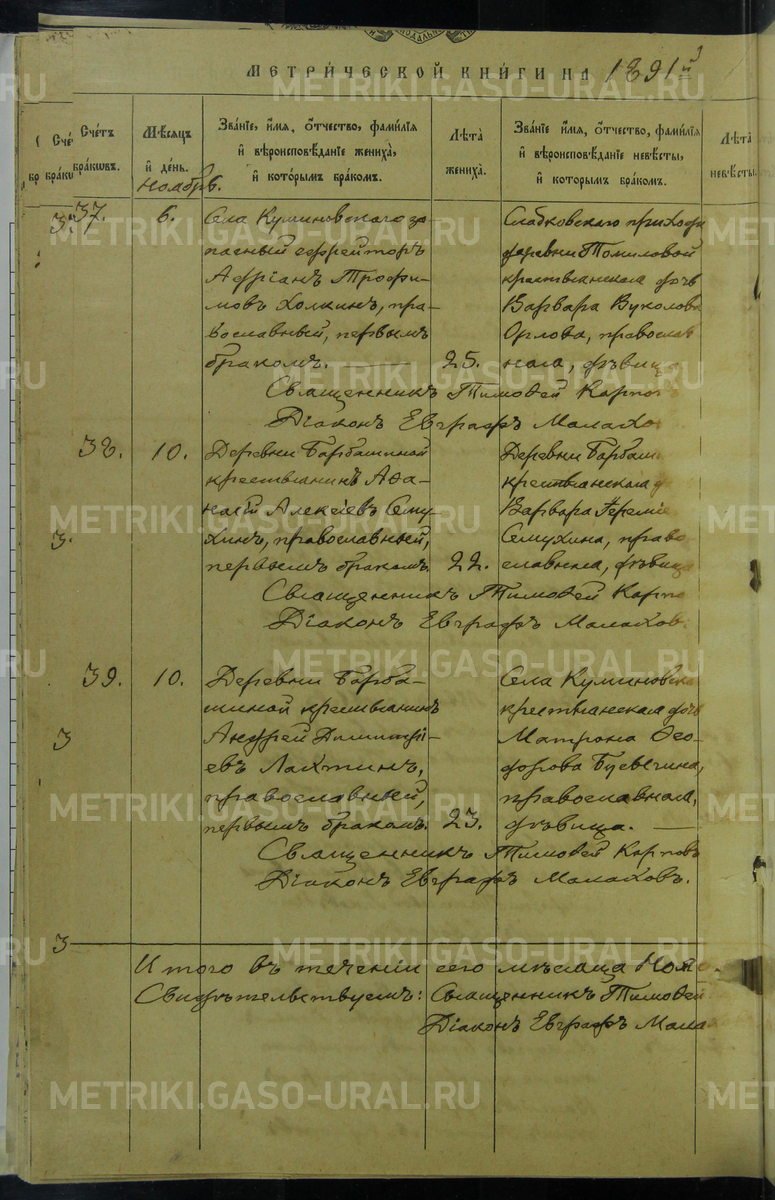 МЕТРИ́ЧЕСКОЙ КНИ́ГИ НА 1891й
Счетъ бракѡвъ.
Мѣсяцъ и́ день.
Зва́нїе, и́мя, ѻ҆́тчество, фами́лїя и҆ вѣроисповѣ́данїе жениха̀, и҆ кото́рымъ бра́комъ.
Лѣ́та жениха̀.
Зва́нїе и́мя, ѻ҆́тчество, фами́лїя и҆ вѣроисповѣ́данїе невѣ́сты, и҆ которымъ бра́комъ.
Лѣ́та невѣ́сты
Ноябрь.
37.
6.
Села Куминовскаго за-
пасный ефрейторъ
Адріанъ Трофи-
мовъ Холкинъ, пра-
вославный, первымъ
бракомъ.
25.
Слабковскаго
деревни Томиловой
крестьянская дочь
Варвара Вуколова
Орлова, православ
ная, дѣвица
Священникъ Тимоѳей Карпов
Діаконъ Евграфъ Малахо
38.
10.
Деревни Барбашиной
крестьянинъ Аѳа-
насій Алексѣевъ Сему-
хинъ, православный,
первымъ бракомъ.
22.
Деревни Барбаш
крестьянская д
Варвара Іереміе
Семухина, право
славная, дѣвица
Священникъ Тимоѳей Карпо
Діаконъ Евграфъ Малахов
39.
10.
Деревни Барба-
шиной крестьянинъ
Андрей Димитрі-
евъ Лактинъ,
православный,
первымъ бракомъ.
23.
Села Куминовска
крестьянская дочь
Матрона Ѳео-
дорова
православная,
дѣвица.
Священникъ Тимоѳей Карповъ
Діаконъ Евграфъ Малаховъ.
Итого въ теченіи сего мѣсяца Нояб
Свидѣтельствуемъ: Священникъ Тимоѳей
Діаконъ Евграфъ Мала
METRIKI.GASO-URAL.RU